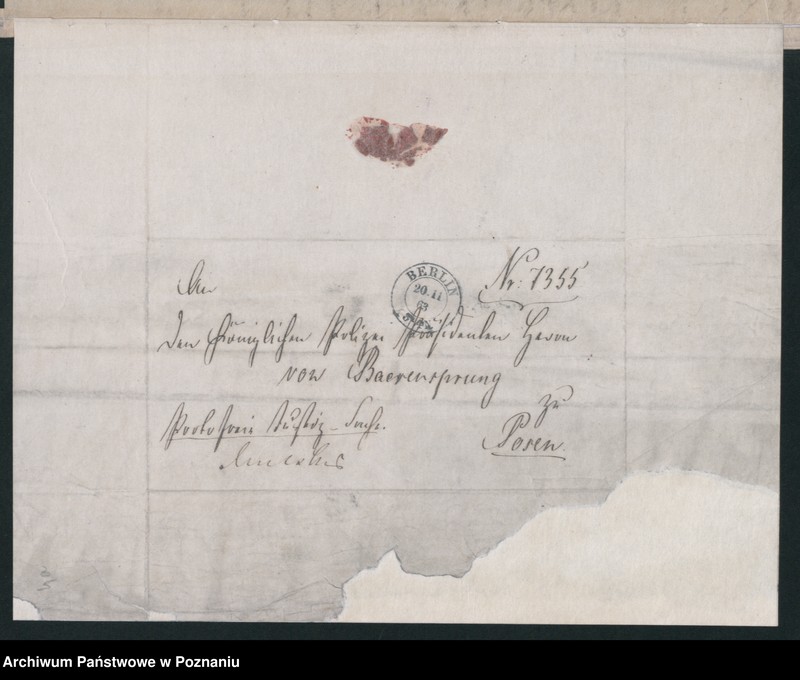 BERLIN
20 11
63
Nr: 7355
An
den Königlichen Polizei Präsidenten Herrn
von Baerensprung
zu
Posen.
Portofreie Justiz-Sache.
Archiwum Państwowe w Poznaniu